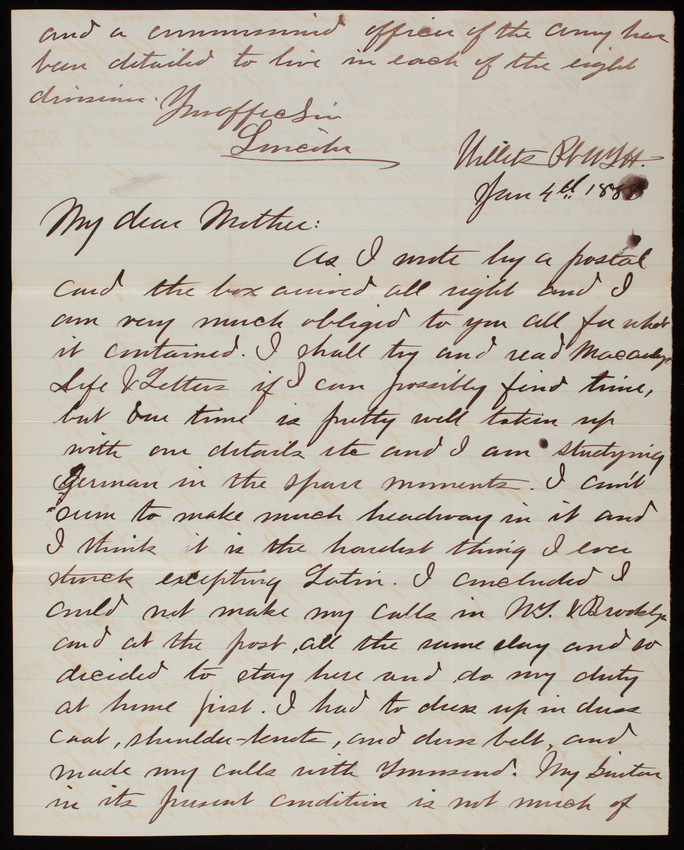 and a commissioned officer of the army has
been detailed to live in each of the eight
divisions. Yr affec Son
Lincoln
Willets Pt N.Y.H.
Jan 4th 188
My dear Mother:
As I wrote by a postal
card the box arrived all right and I
am very much obliged to you all for what
it contained. I shall try and read Macaulay's
Life & Letters if I can possibly find time,
but our time is pretty well taken up
with our details etc and I am studying
German in the spare moments. I can't
seem to make much headway in it and
I think it is the hardest thing I ever
struck excepting Latin. I concluded I
could not make my calls in N.Y. & Brooklyn
and at the post, all the same day and so
decided to stay here and do my duty
at home first. I had to dress up in dress
coat, shoulder-knots, and dress belt, and
made my calls with Townsend. My
in its present condition is not much of